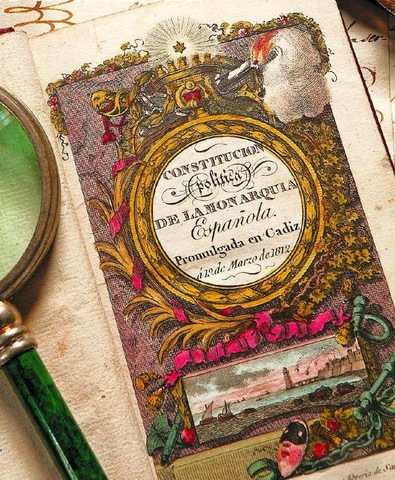 CONSTITUCION
política
DE LA MONARQUIA
Española.
Promulgada en Cadiz
á 19 de Marzo de 1812.